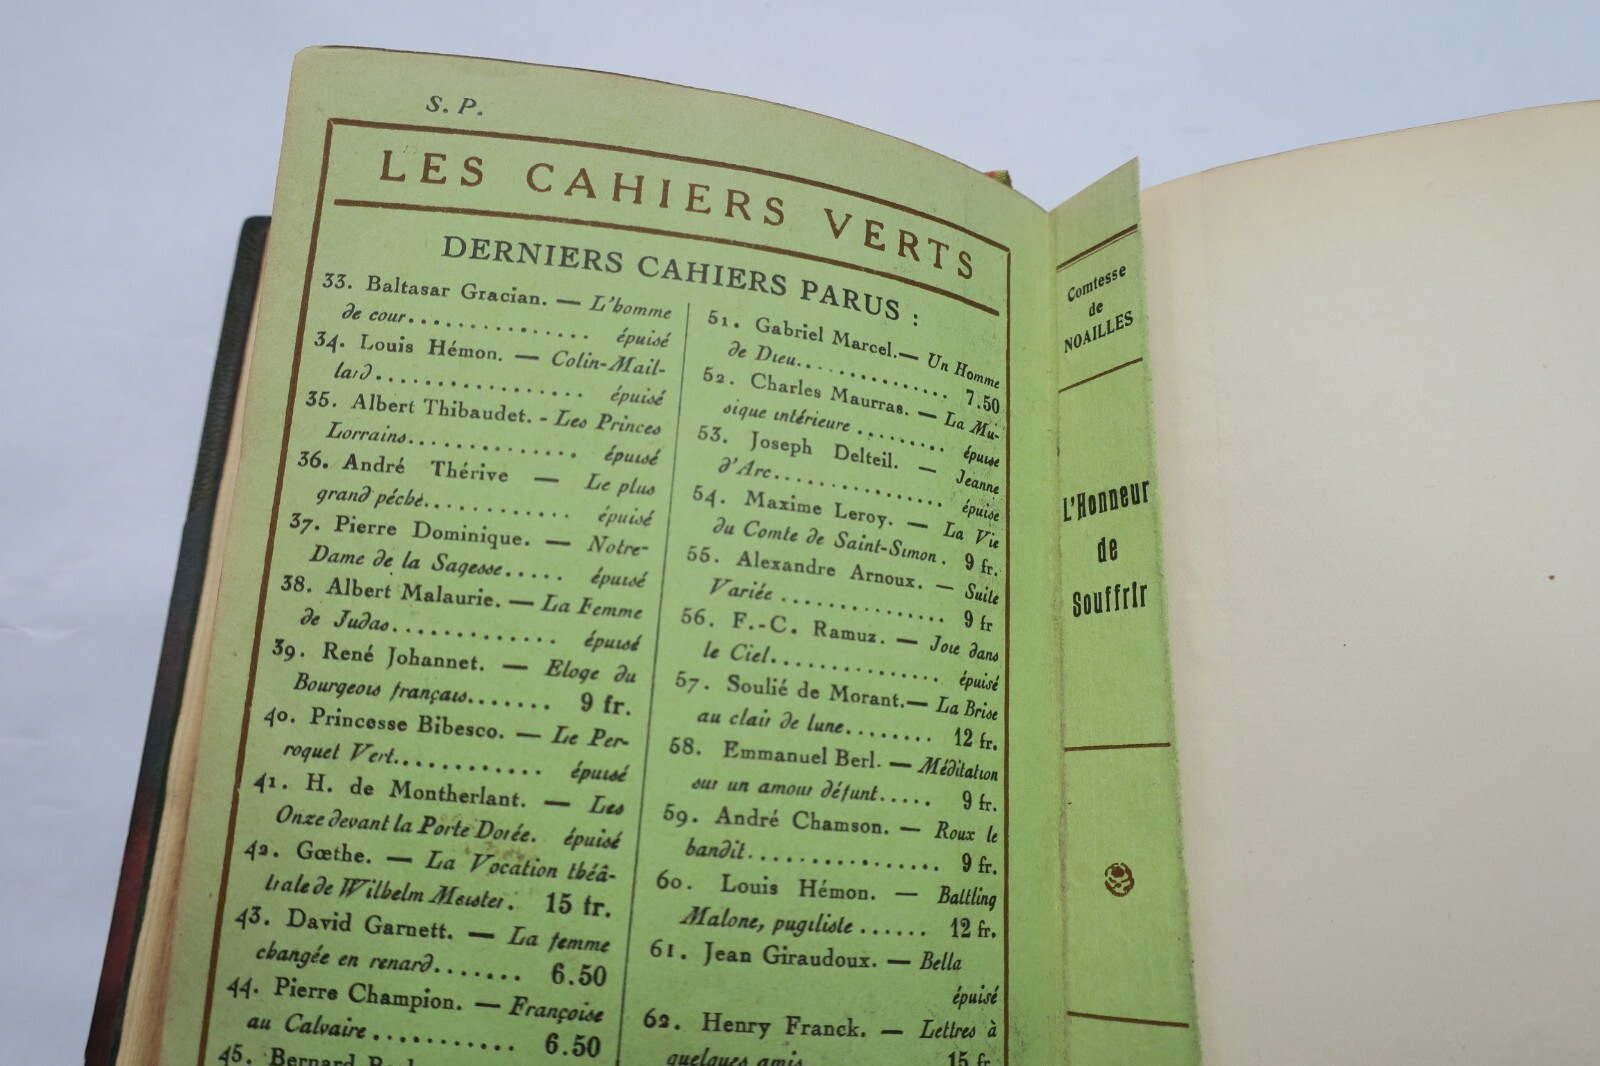 S. P.
LES CAHIERS VERTS
DERNIERS CAHIERS PARUS :
33. Baltasar Gracian. — L'homme
de cour............... épuisé
34. Louis Hémon. — Colin-Mail-
lard................. épuisé
35. Albert Thibaudet. - Les Princes
Lorrains............. épuisé
36. André Thérive — Le plus
grand péché............ épuisé
37. Pierre Dominique. — Notre-
Dame de la Sagesse..... épuisé
38. Albert Malaurie. — La Femme
de Judas.............. épuisé
39. René Johannet. — Eloge du
Bourgeois français....... 9 fr.
40. Princesse Bibesco. — Le Per-
roquet Vert............ épuisé
41. H. de Montherlant. — Les
Onze devant la Porte Dorée. épuisé
42. Gœthe. — La Vocation théâ-
trale de Wilhelm Meister. 15 fr.
43. David Garnett. — La femme
changée en renard....... 6.50
44. Pierre Champion. — Françoise
au Calvaire............ 6.50
45. Bernard
51. Gabriel Marcel.— Un Homme
de Dieu............... 7.50
52. Charles Maurras. — La Mu-
sique intérieure ......... épuisé
53. Joseph Delteil. — Jeanne
d'Arc................ épuisé
54. Maxime Leroy. — La Vie
du Comte de Saint-Simon. 9 fr.
55. Alexandre Arnoux. — Suite
Variée .............. 9 fr
56. F.-C. Ramuz. — Joie dans
le Ciel............... épuisé
57. Soulié de Morant.— La Brise
au clair de lune........ 12 fr.
58. Emmanuel Berl. — Méditation
sur un amour défunt..... 9 fr.
59. André Chamson. — Roux le
bandit................ 9 fr.
60. Louis Hémon. — Battling
Malone, pugiliste ...... 12 fr.
61. Jean Giraudoux. — Bella
épuisé
62. Henry Franck. — Lettres à
quelques amis 15 fr
Comtesse
de
NOAILLES
L'Honneur
de
Souffrir